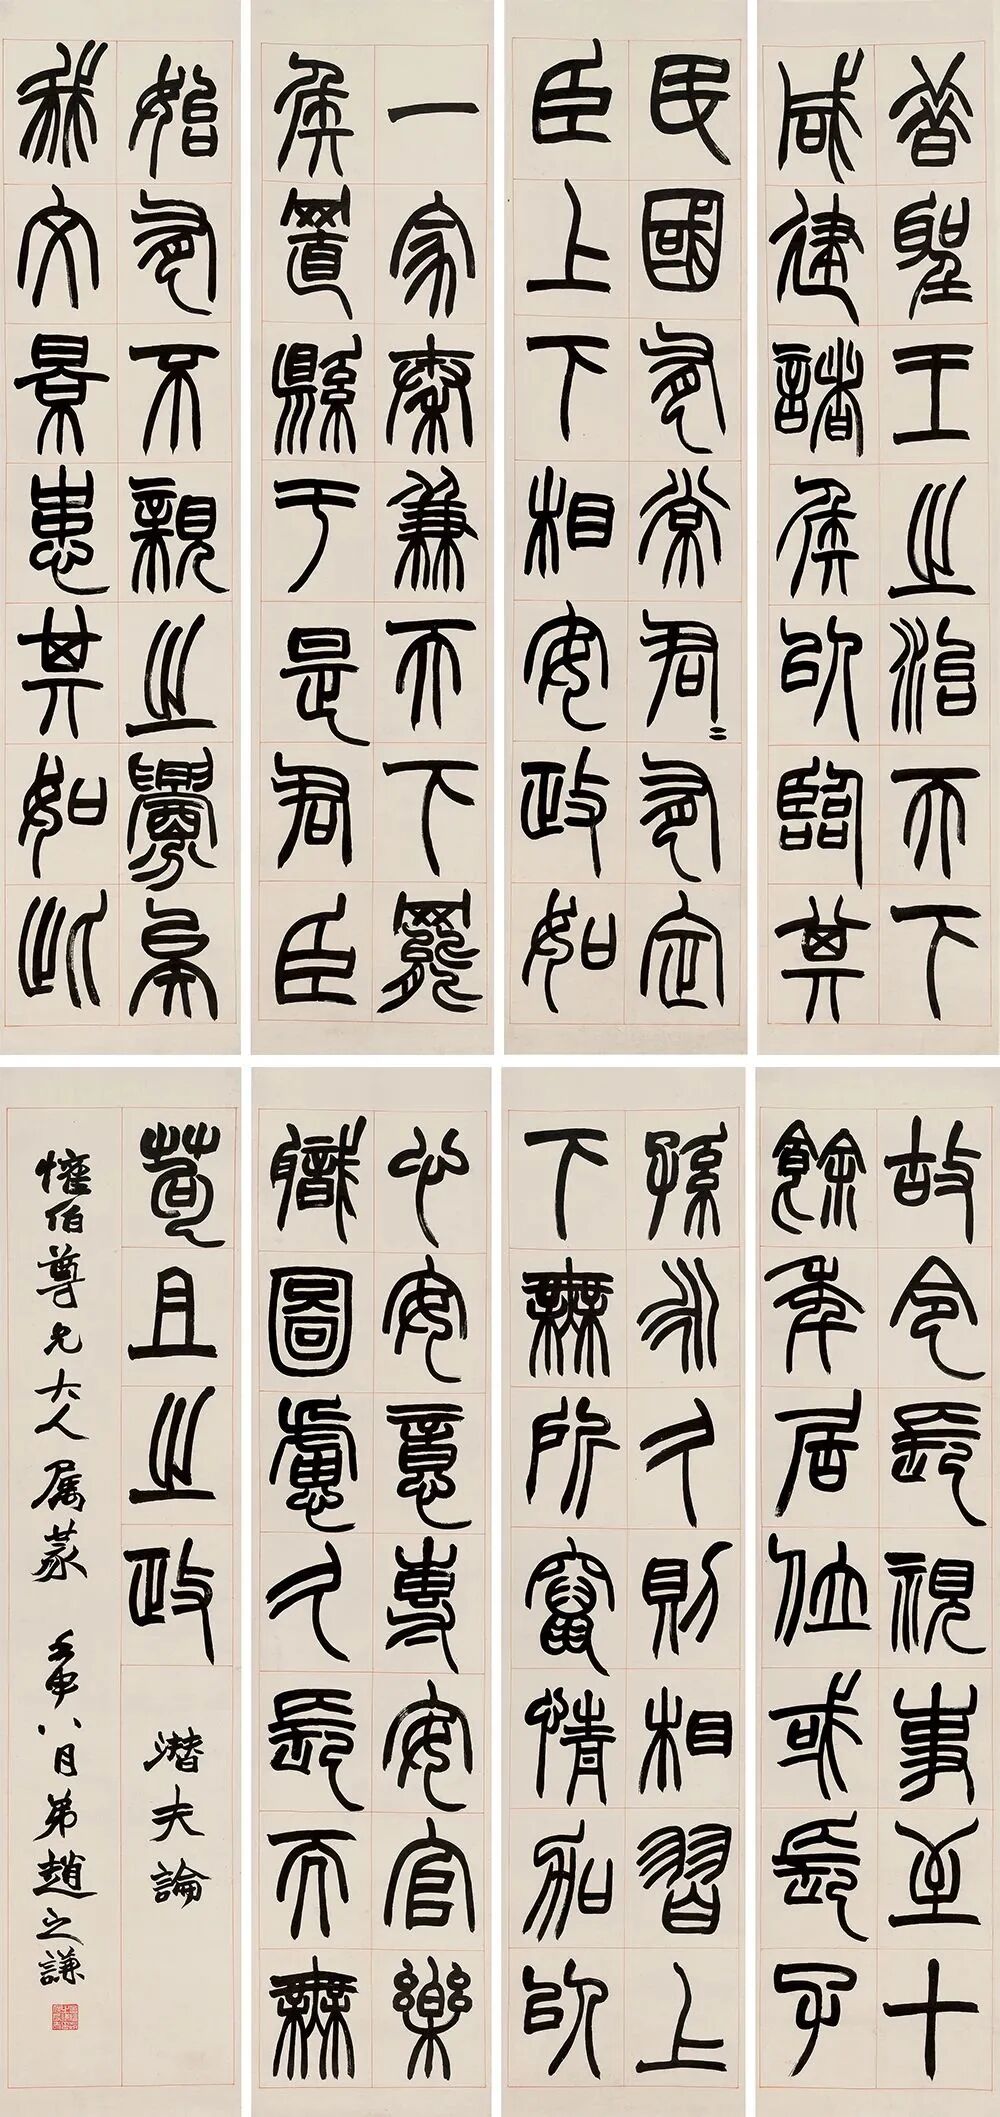 昔聖王之治天下
咸建諸侯以臨其
民國有常君〻有定
臣上下相安政如
一家秦兼天下罷
侯置縣于是君臣
始有不親之釁矣
我文景患其如此
故令長視事至十
餘年居位或長子
孫永久則相習上
下無所竄情加以
心安意專安官樂
職圖慮久長而無
苟且之政 潛夫論
懽伯尊兄大人属篆 壬申八月弟趙之謙